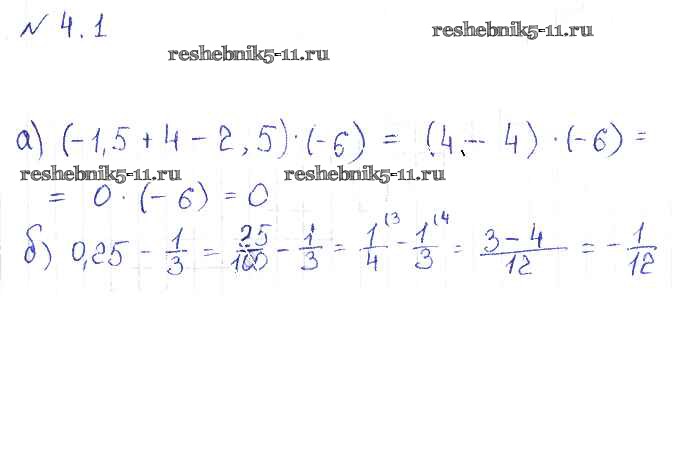 № 4.1
reshebnik5-11.ru
reshebnik5-11.ru
а) (-1,5 + 4 - 2,5) · (-6) = (4 - 4) · (-6) =
reshebnik5-11.ru
reshebnik5-11.ru
= 0 · (-6) = 0
б) 0,25 - 1/3 = 25/100 - 1/3 = 1/4 (3 - 1/3 (4 = 3-4/12 = - 1/12